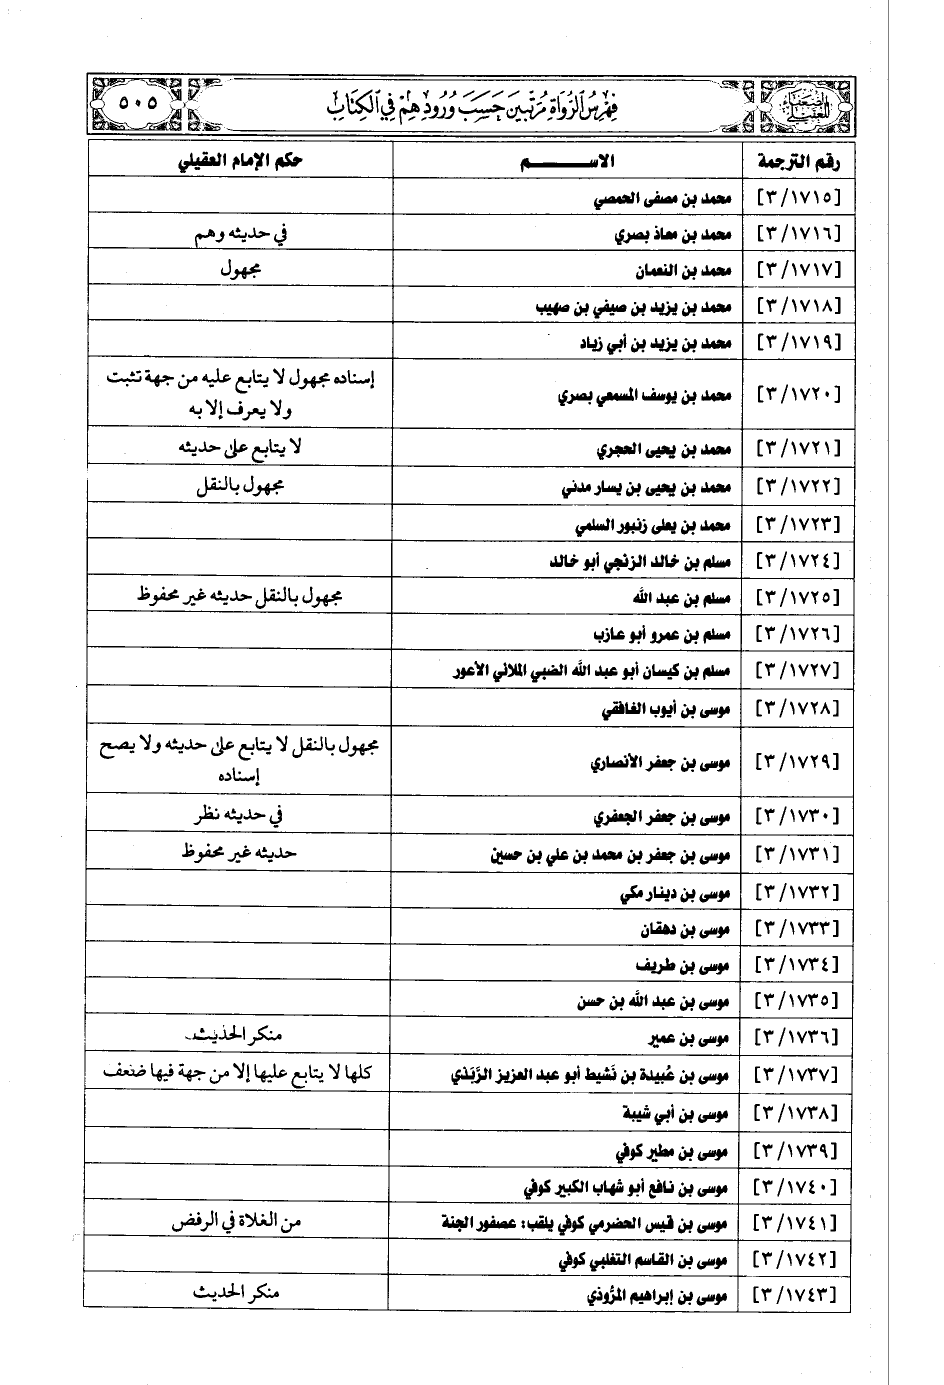 الضعفاء للعقيلي فهرس الرواة مرتبين حسب ورودهم في الكتاب ٥٠٥
رقم الترجمة الاســـــــم حكم الإمام العقيلي
[٣/١٧١٥] محمد بن مصفى الحمصي
[٣/١٧١٦] محمد بن معاذ بصري في حديثه وهم
[٣/١٧١٧] محمد بن النعمان مجهول
[٣/١٧١٨] محمد بن يزيد بن صيفي بن صهيب
[٣/١٧١٩] محمد بن يزيد بن أبي زياد
[٣/١٧٢٠] محمد بن يوسف المسمعي بصري إسناده مجهول لا يتابع عليه من جهة تثبت
ولا يعرف إلا به
[٣/١٧٢١] محمد بن يحيى الحجري لا يتابع على حديثه
[٣/١٧٢٢] محمد بن يحيى بن يسار مدني مجهول بالنقل
[٣/١٧٢٣] محمد بن يعلى زنبور السلمي
[٣/١٧٢٤] مسلم بن خالد الزنجي أبو خالد
[٣/١٧٢٥] مسلم بن عبد الله مجهول بالنقل حديثه غير محفوظ
[٣/١٧٢٦] مسلم بن عمرو أبو عازب
[٣/١٧٢٧] مسلم بن كيسان أبو عبد الله الضبي الملائي الأعور
[٣/١٧٢٨] موسى بن أيوب الغافقي
[٣/١٧٢٩] موسى بن جعفر الأنصاري مجهول بالنقل لا يتابع على حديثه ولا يصح
إسناده
[٣/١٧٣٠] موسى بن جعفر الجعفري في حديثه نظر
[٣/١٧٣١] موسى بن جعفر بن محمد بن علي بن حسين حديثه غير محفوظ
[٣/١٧٣٢] موسى بن دينار مكي
[٣/١٧٣٣] موسى بن دهقان
[٣/١٧٣٤] موسى بن طريف
[٣/١٧٣٥] موسى بن عبد الله بن حسن
[٣/١٧٣٦] موسى بن عمير منكر الحديث
[٣/١٧٣٧] موسى بن عُبيدة بن نَشيط أبو عبد العزيز الرَّبَذي كلها لا يتابع عليها إلا من جهة فيها ضعف
[٣/١٧٣٨] موسى بن أبي شيبة
[٣/١٧٣٩] موسى بن مطير كوفي
[٣/١٧٤٠] موسى بن نافع أبو شهاب الكبير كوفي
[٣/١٧٤١] موسى بن قيس الحضرمي كوفي يلقب: عصفور الجنة من الغلاة في الرفض
[٣/١٧٤٢] موسى بن القاسم التغلبي كوفي
[٣/١٧٤٣] موسى بن إبراهيم المرُّوذي منكر الحديث